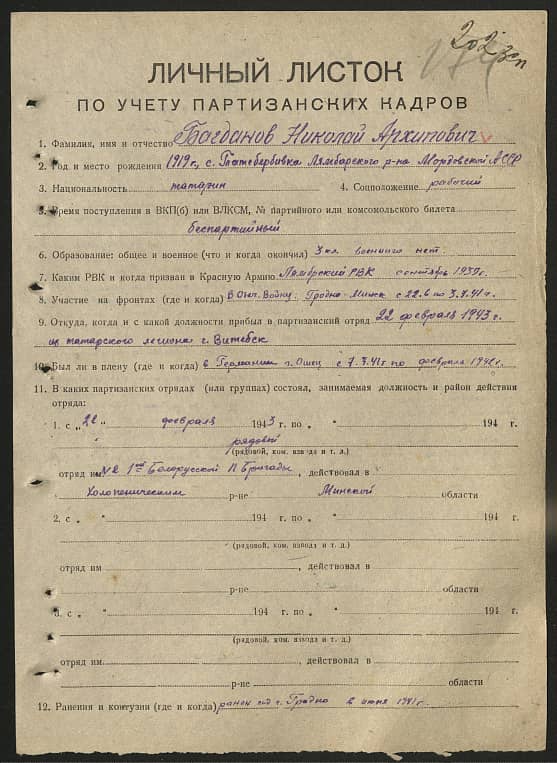 202
ЛИЧНЫЙ ЛИСТОК
ПО УЧЕТУ ПАРТИЗАНСКИХ КАДРОВ
1. Фамилия, имя и отчество Багданов Николай Архипович
2. Год и место рождения 1919 г., с. Татсвербовка Лямбирского р-на Мордовской АССР
3. Национальность татарин 4. Соцположение рабочий
5. Время поступления в ВКП(б) или ВЛКСМ, № партийного или комсомольского билета
беспартийный
6. Образование: общее и военное (что и когда окончил) 3 кл военного нет
7. Каким РВК и когда призван в Красную Армию Лямбрский РВК сентябрь 1939 г.
8. Участие на фронтах (где и когда) В Отч. Войну: Гродно-Минск с 22.6 по 3.7.41 г.
9. Откуда, когда и с какой должности прибыл в партизанский отряд 22 февраля 1943 г.
из татарского легиона г. Витебск
10. Был ли в плену (где и когда) в Германии с 7.7.41 г по февраль
11. В каких партизанских отрядах (или группах) состоял, занимаемая должность и район действия
отряда:
1. с „ 22 “ февраля 1943 г. по „ “ 194 г.
рядовой
(рядовой, ком. взвода и т. д.)
отряд им №2 1ой Белорусской П Бригады, действовал в
Холопеническим р-не Минской области
2. с „ “ 194 г. по „ “ 194 г.
(рядовой, ком. взвода и т. д.)
отряд им , действовал в
р-не области
3. с „ “ 194 г. по „ “ 194 г.
(рядовой, ком. взвода и т. д.)
отряд им , действовал в
р-не области
12. Ранения и контузии (где и когда) ранен под г. Гродно в июня 1941 г.